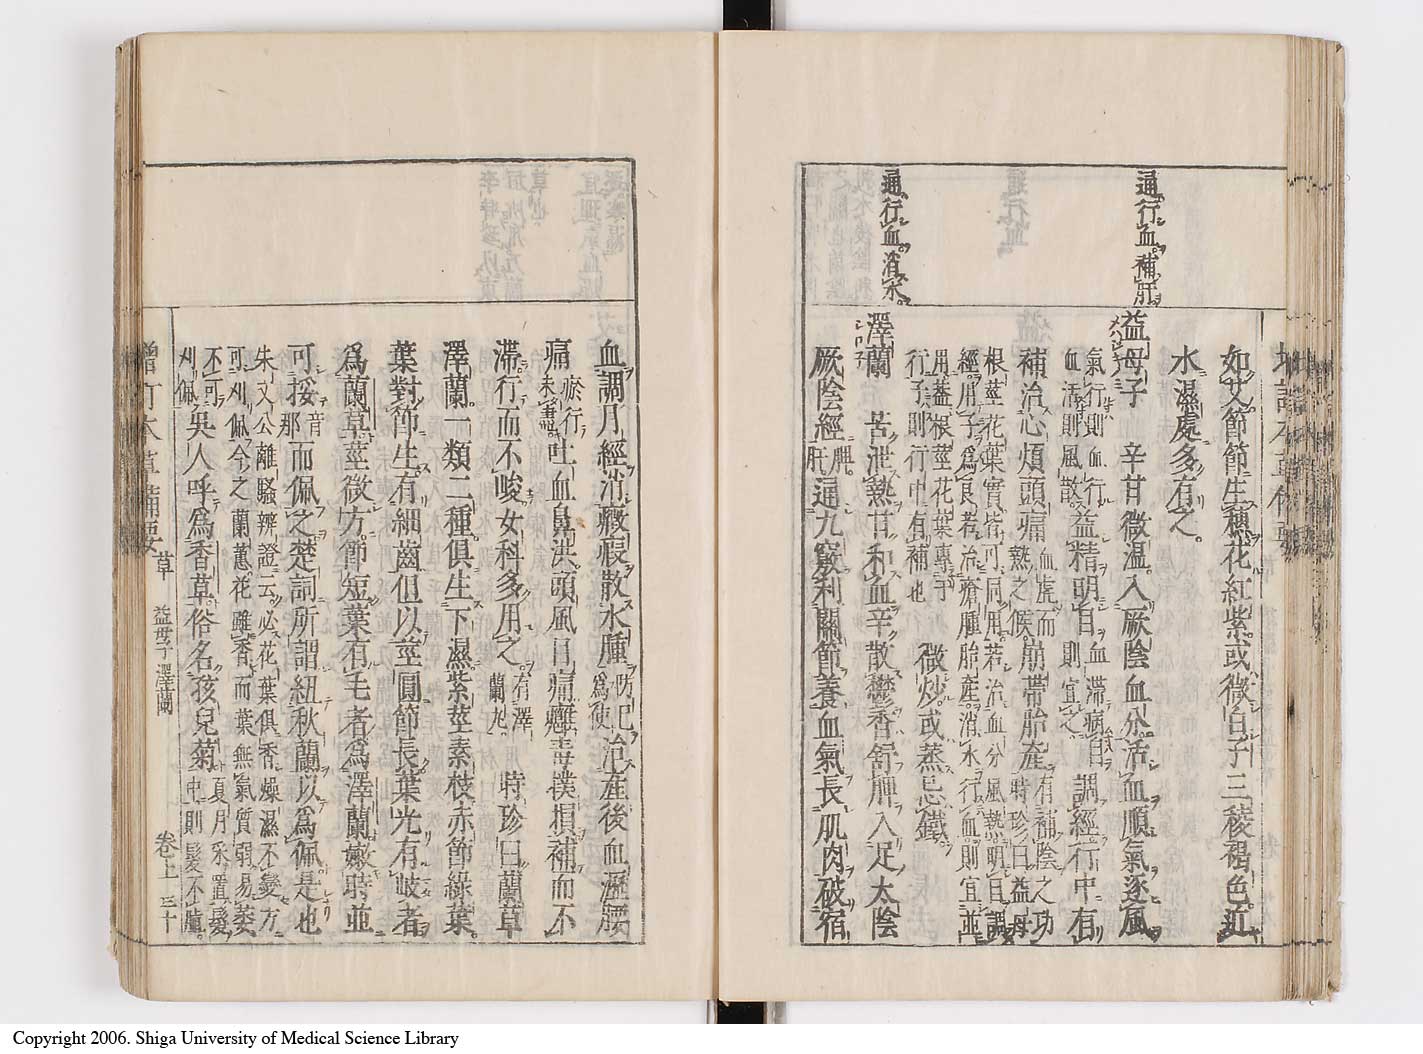 通行血補肝
通行血消水
如艾節節生穗花紅紫或微白子三稜褐色近
水濕處多有之
益母子　辛甘微温入厥陰血分活血順氣逐風
氣行則血行
血活則風散
益精明目
血滯病目
則宜之
調經行中有
補治心煩頭痛
血虛而
熱之候
崩帶胎產
有補陰之功
時珍曰益母
根莖花葉實皆可同用若治血分風熱明目調
經用子爲良若治瘡腫胎產消水行血則宜並
用蓋根莖花葉專于
行子則行中有補也
微炒或蒸忌鐵
澤蘭　苦泄熱甘和血辛散鬱香舒脾入足太陰
厥陰經
脾
肝
通九竅利關節養血氣長肌肉破宿
血調月經消癥瘕散水腫
防已
爲使
治產後血瀝腰
痛
瘀行
未盡
吐血鼻洪頭風目痛癰毒撲損補而不
滯行而不峻女科多用之
有澤
蘭丸
時珍曰蘭草
澤蘭一類二種俱生下濕紫莖素枝赤節綠葉
葉對節生有細齒但以莖圓節長葉光有岐者
爲蘭草莖微方節短葉有毛者爲澤蘭嫩時並
可挼
音
那
而佩之楚詞所謂紐秋蘭以爲佩是也
朱文公離騷辨證云必花葉俱香燥濕不變方
可刈佩今之蘭蕙花雖香而葉無氣質弱易萎
不可
刈佩
吳人呼爲香草俗名孩兒菊
夏月采置髮
中則髮不䐈
增訂本草備要
草
益母子 澤蘭
卷上 三十
Copyright 2006. Shiga University of Medical Science Library